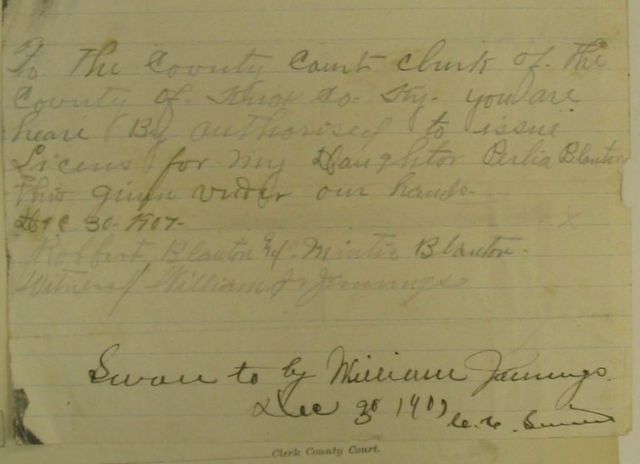 To the County Court Clurk of. the
County of. Knox Co. Ky. you are
heare By authorised to issue
Licens for my Daughtor Perlia Blanton
this givin vnder our hands.
Dec 30. 1907.
Robbert Blanton & Mintie Blanton. X
Witness William J. Jennings
Swore to by William Jennings.
Dec 30 1907
Clerk County Court.